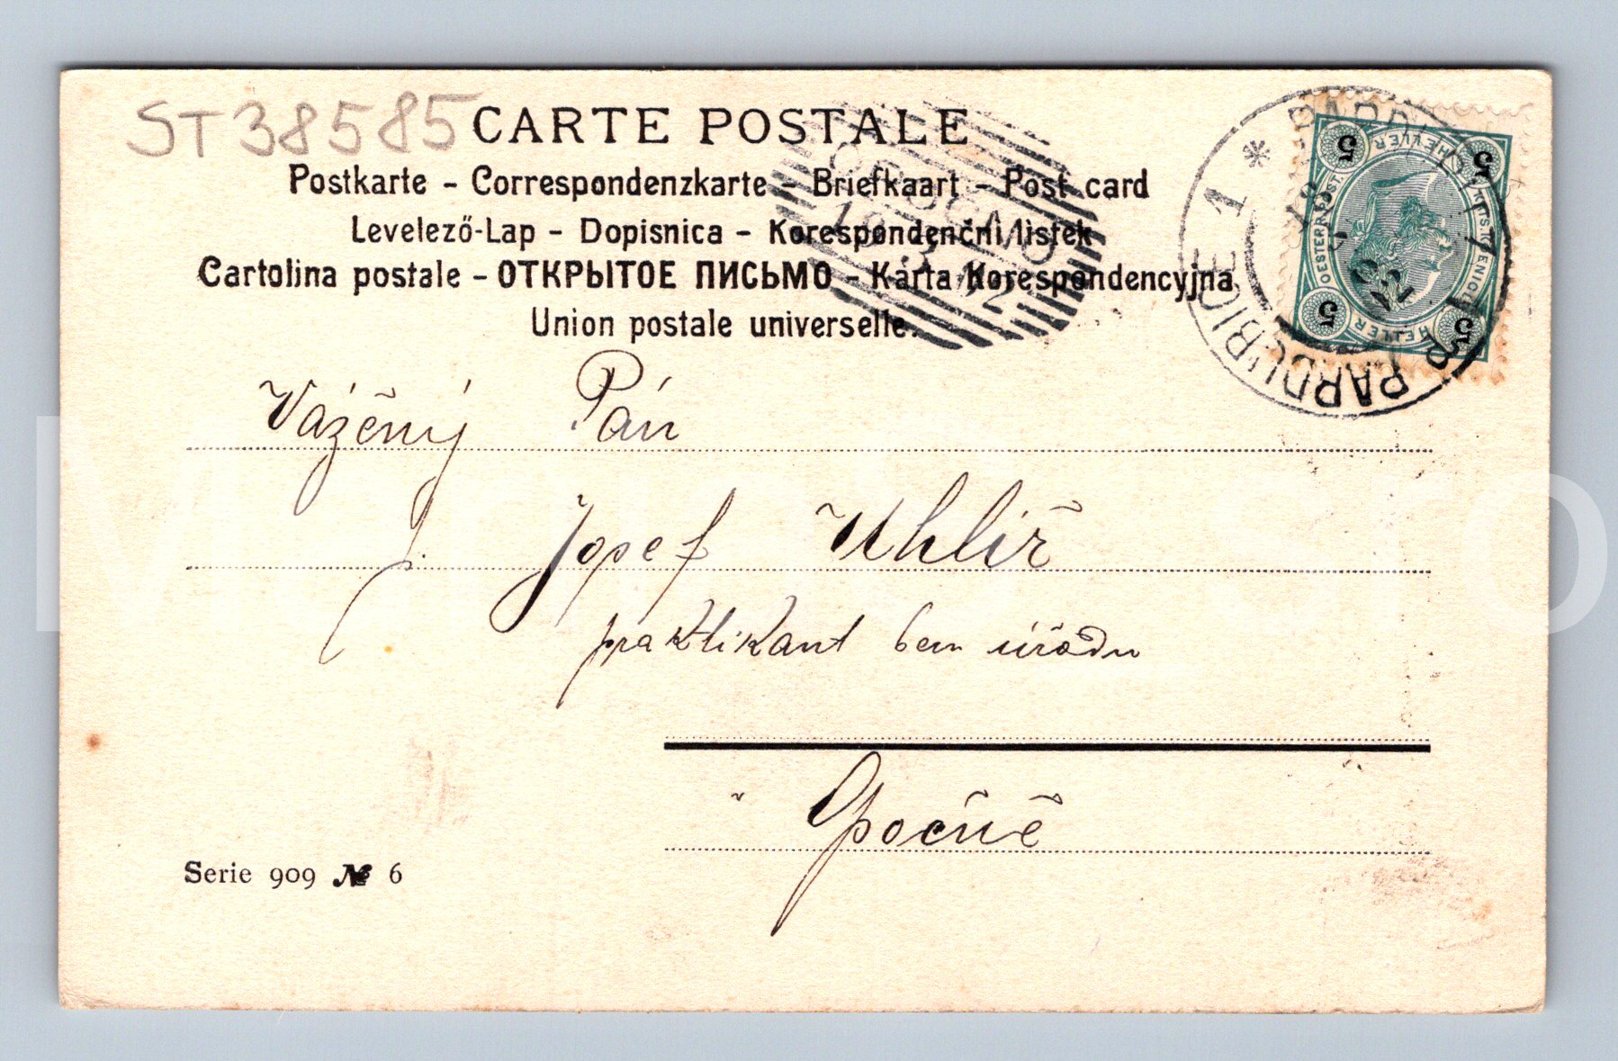 ST38585
CARTE POSTALE
Postkarte - Correspondenzkarte - Briefkaart - Post card
Levelező-Lap - Dopisnica - Korespondenční listek
Cartolina postale - ОТКРЫТОЕ ПИСЬМО - Karta Korespondencyjna
Union postale universelle.
5 HELLER 5
PARDUBICE 1
Vážený Pán
Josef Uhlíř
praktikant
Opočně
Serie 909 № 6